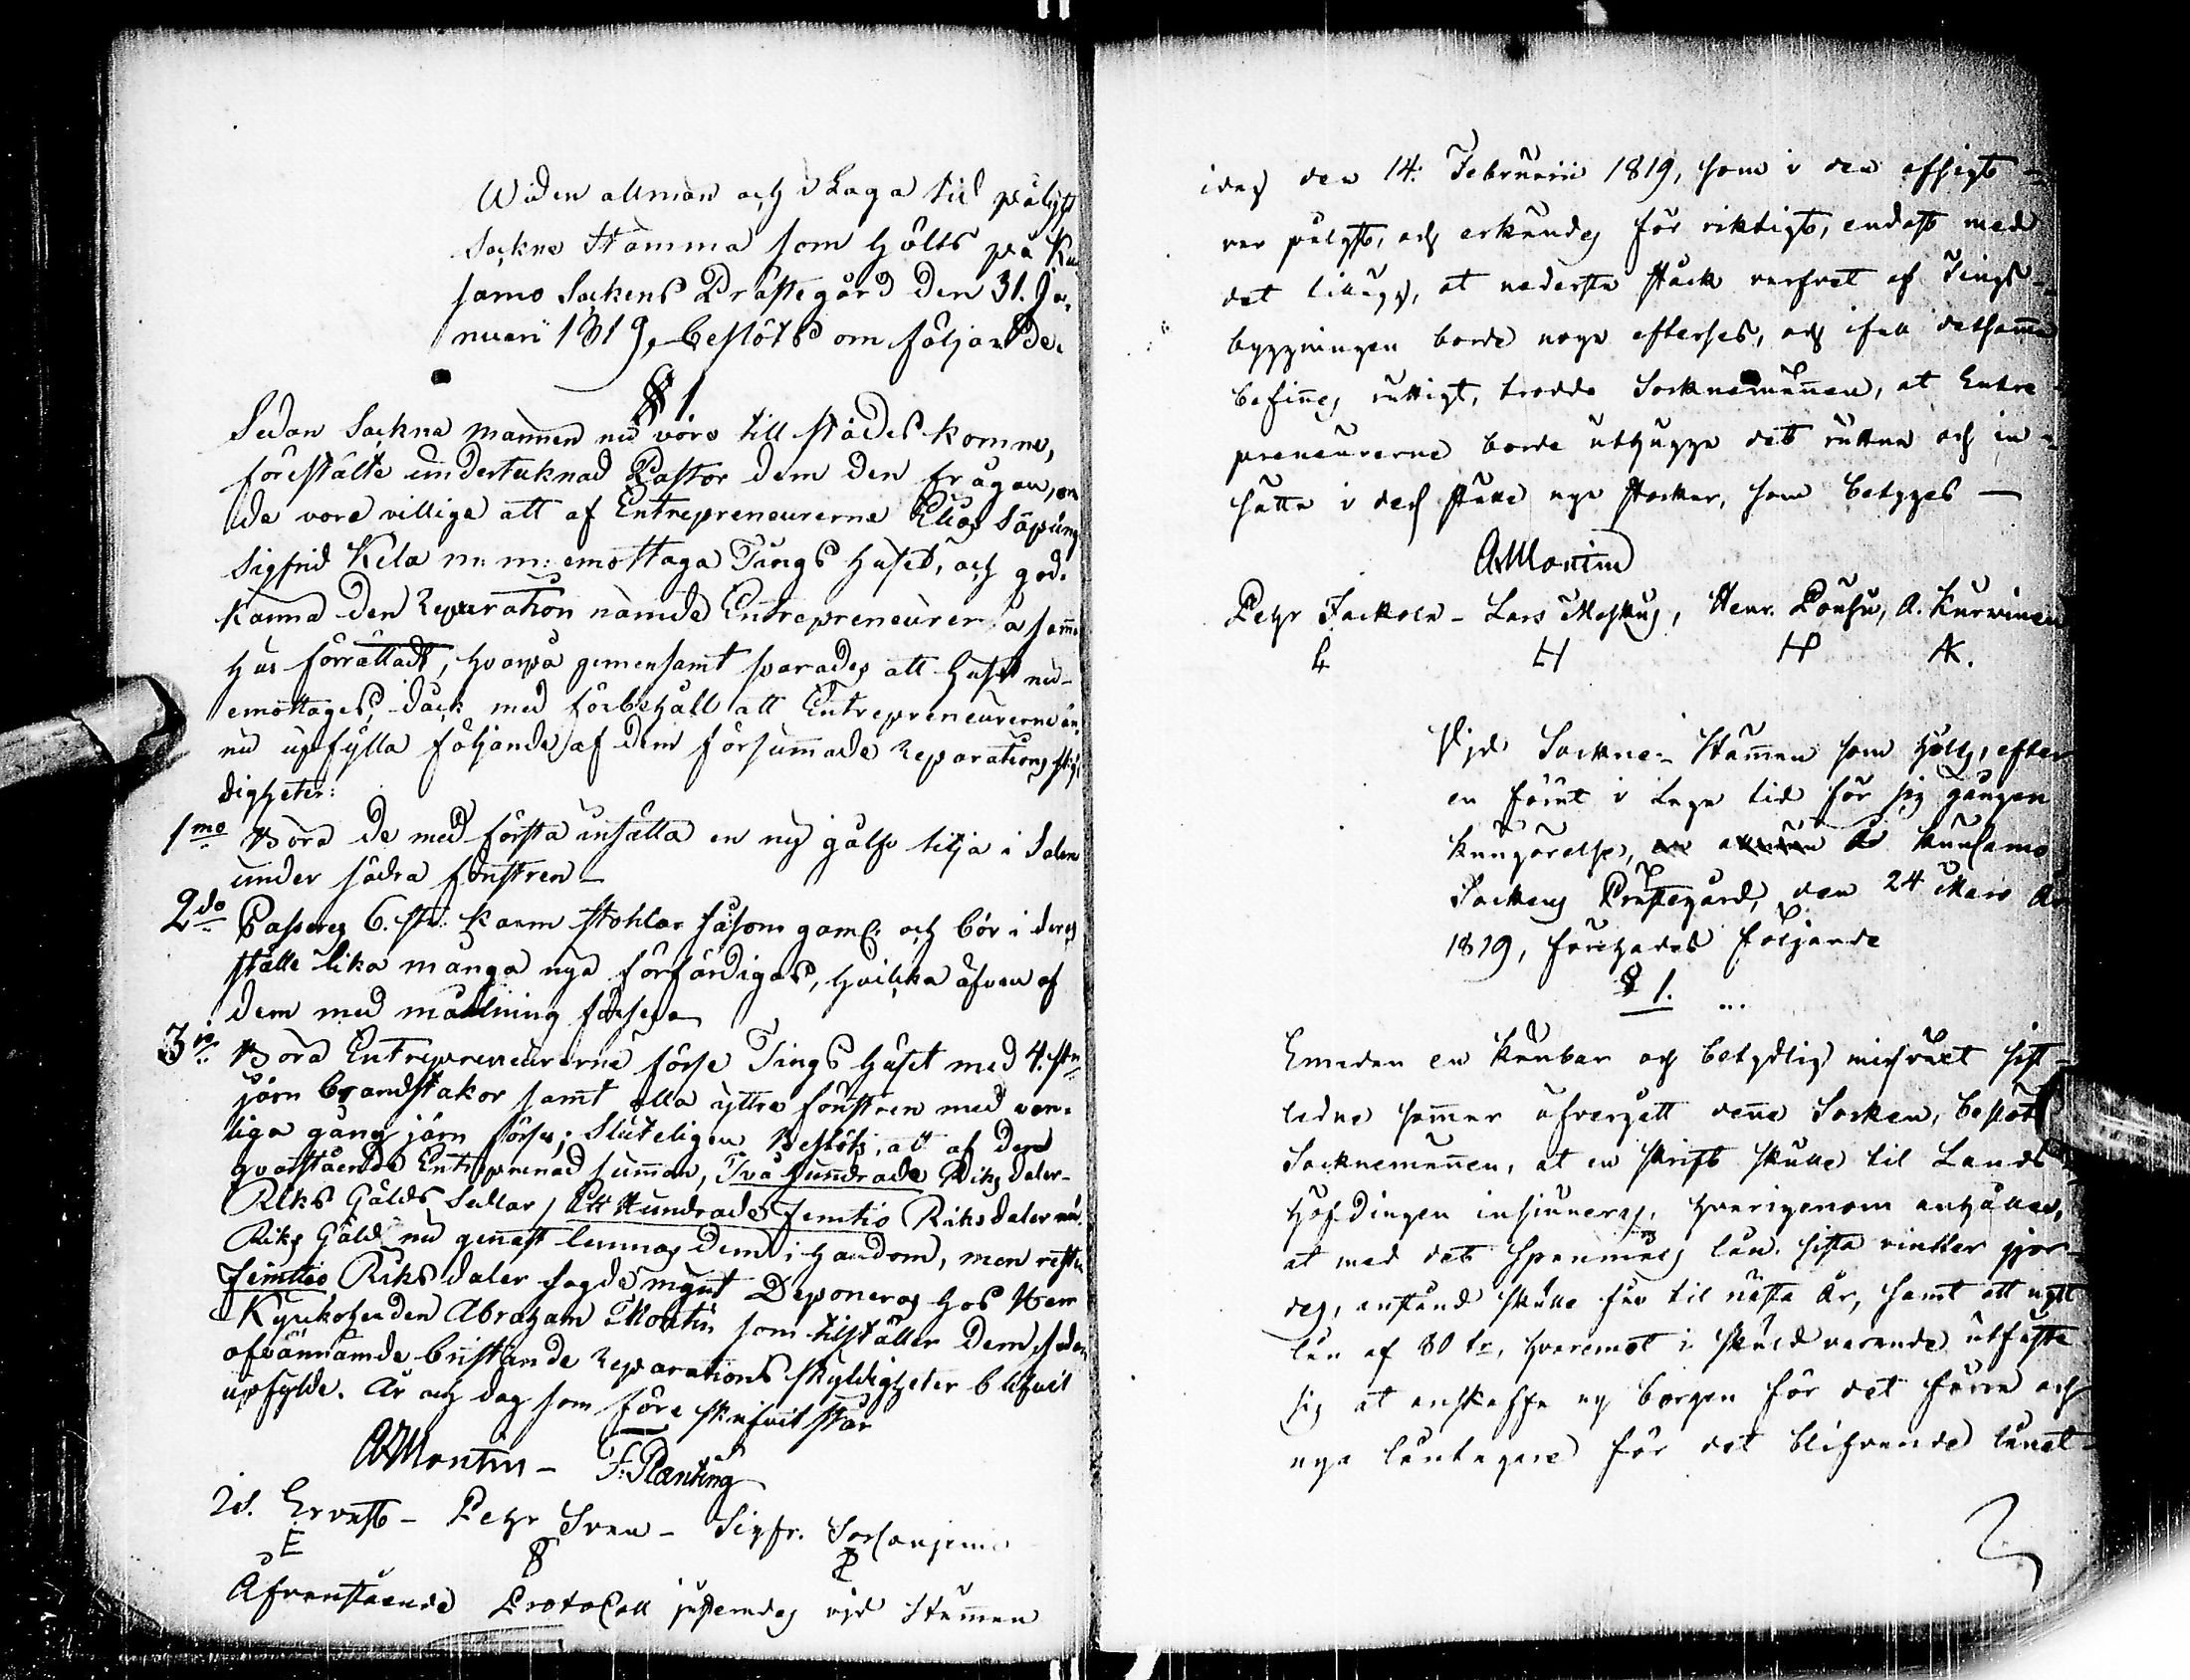 Widen allmän och i Laga tid pålyst
Sockne Stämma som hölts på Ku
samo Sockens Prästegård den 31. Ja-
nuarii 1819, beslöts om följande.
§ 1
Sedan Sockne männen nu voro till städes komne,
förestälte undertecknad Pastor dem den frågan, om
de voro villige att af Entrepreneurerne Elias Säpung
Sigfrid Kela m: m: emottaga Tings huset, och god-
känna den Reparation nämde Entrepreneurer å samma
hus förrättadt, hvarpå gemensamt svarades att huset nu
emottages, dock med förbehåll att Entrepreneurerne än-
nu upfylla följande af dem försummade Reparations skyl
digheter:
1mo Böra de med första insätta en ny golfs tilja i Salen
under södra fönstren –
2do Passeras 6. st: karm stohlar såsom gaml. och bör i deras
ställe lika många nya förfärdigas, hvilcka äfven af
dem med målning förses –
3io Böra Entrepreneurerne förse Tings huset med 4. st:
järn brandstakar samt alla yttre fönstren med van-
liga gång järn förses; Sluteligen Beslöts, att af den
qvarstående Entreprenad summan, Två hundrade Riksdaler
Riks Gälds Sedlar, Ett Hundrade Femtio Riksdaler
Riks Gäld nu genast lemnas dem i handom, men resten
Femtio Riksdaler sagde mynt Deponeras hos Herr
Kyrkoherden Abraham Montin som tilställer dem sedan
ofvannämde bristande Reparations skyldigheter blifvit
upfylde. År och dag som före skrifvit står
A Montin – F: Planting
Is. Ervast – Pehr Sven – Sigfr.
E
Åfvanstående Protocoll justerades vid Stämman
idag den 14. Februarii 1819, som i den afsigt
var pålyst, och erkändes för riktigt, endast med
det tillägg, at nedersta stock varfvet af Tings-
byggningen borde noga efterses, och ifall detsamma
befinnes ruttigt, trodde Socknemännen, at Entre-
preneurerne borde uthugga det ruttna och in-
sätta i dess ställe nya stockar, som betygas —
A Montin
Pehr Jackola – Lars Moskus, Henr. Pousu, A. Kurvinen
H HP AK.
Vid Sockne-Stämman som hölls, efter
en förut i Laga tid för sig gången
kungörelse, Kuusamo
Sockens Prästegård, den 24 Mars År
1819, förehades följande
§ 1.
Emedan en kännbar och betydlig misväxt sist-
ledne sommar öfvergått denne Socken, beslöt
Socknemännen, at en skrift skulle til Lands-
höfdingen insinueras, hvarigenom anhålles,
at med det Spanmåls lån, sista vinter gjor-
des, anstånd skulle fås til nästa År, samt ett nytt
lån af 80 t:r, hvaremot i skuld varande utfäste
sig at anskaffa ny borgen för det förra och
nya låntagare för det blifvande lånet